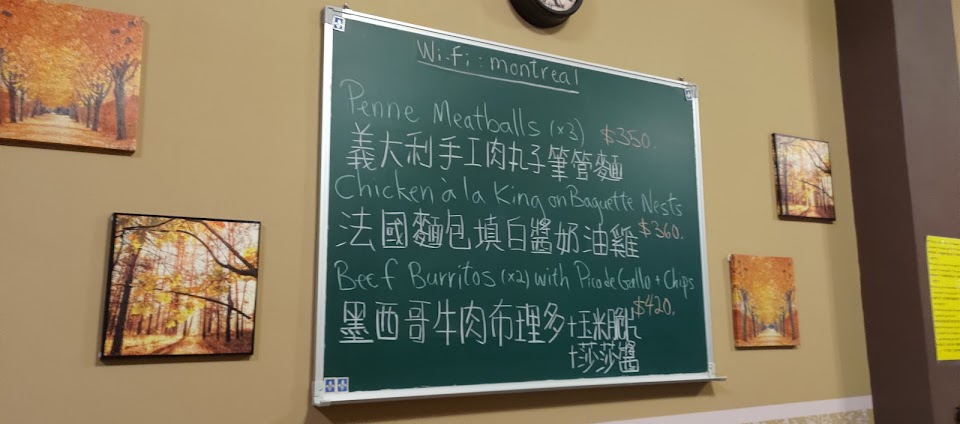 Wi-Fi: montreal
Penne Meatballs (x3) $350.
義大利手工肉丸子筆管麵
Chicken à la King on Baguette Nests
法國麵包填白醬奶油雞 $360.
Beef Burritos (x2) with Pico de Gallo + Chips
墨西哥牛肉布理多 +玉米脆片 $420.
+莎莎醬